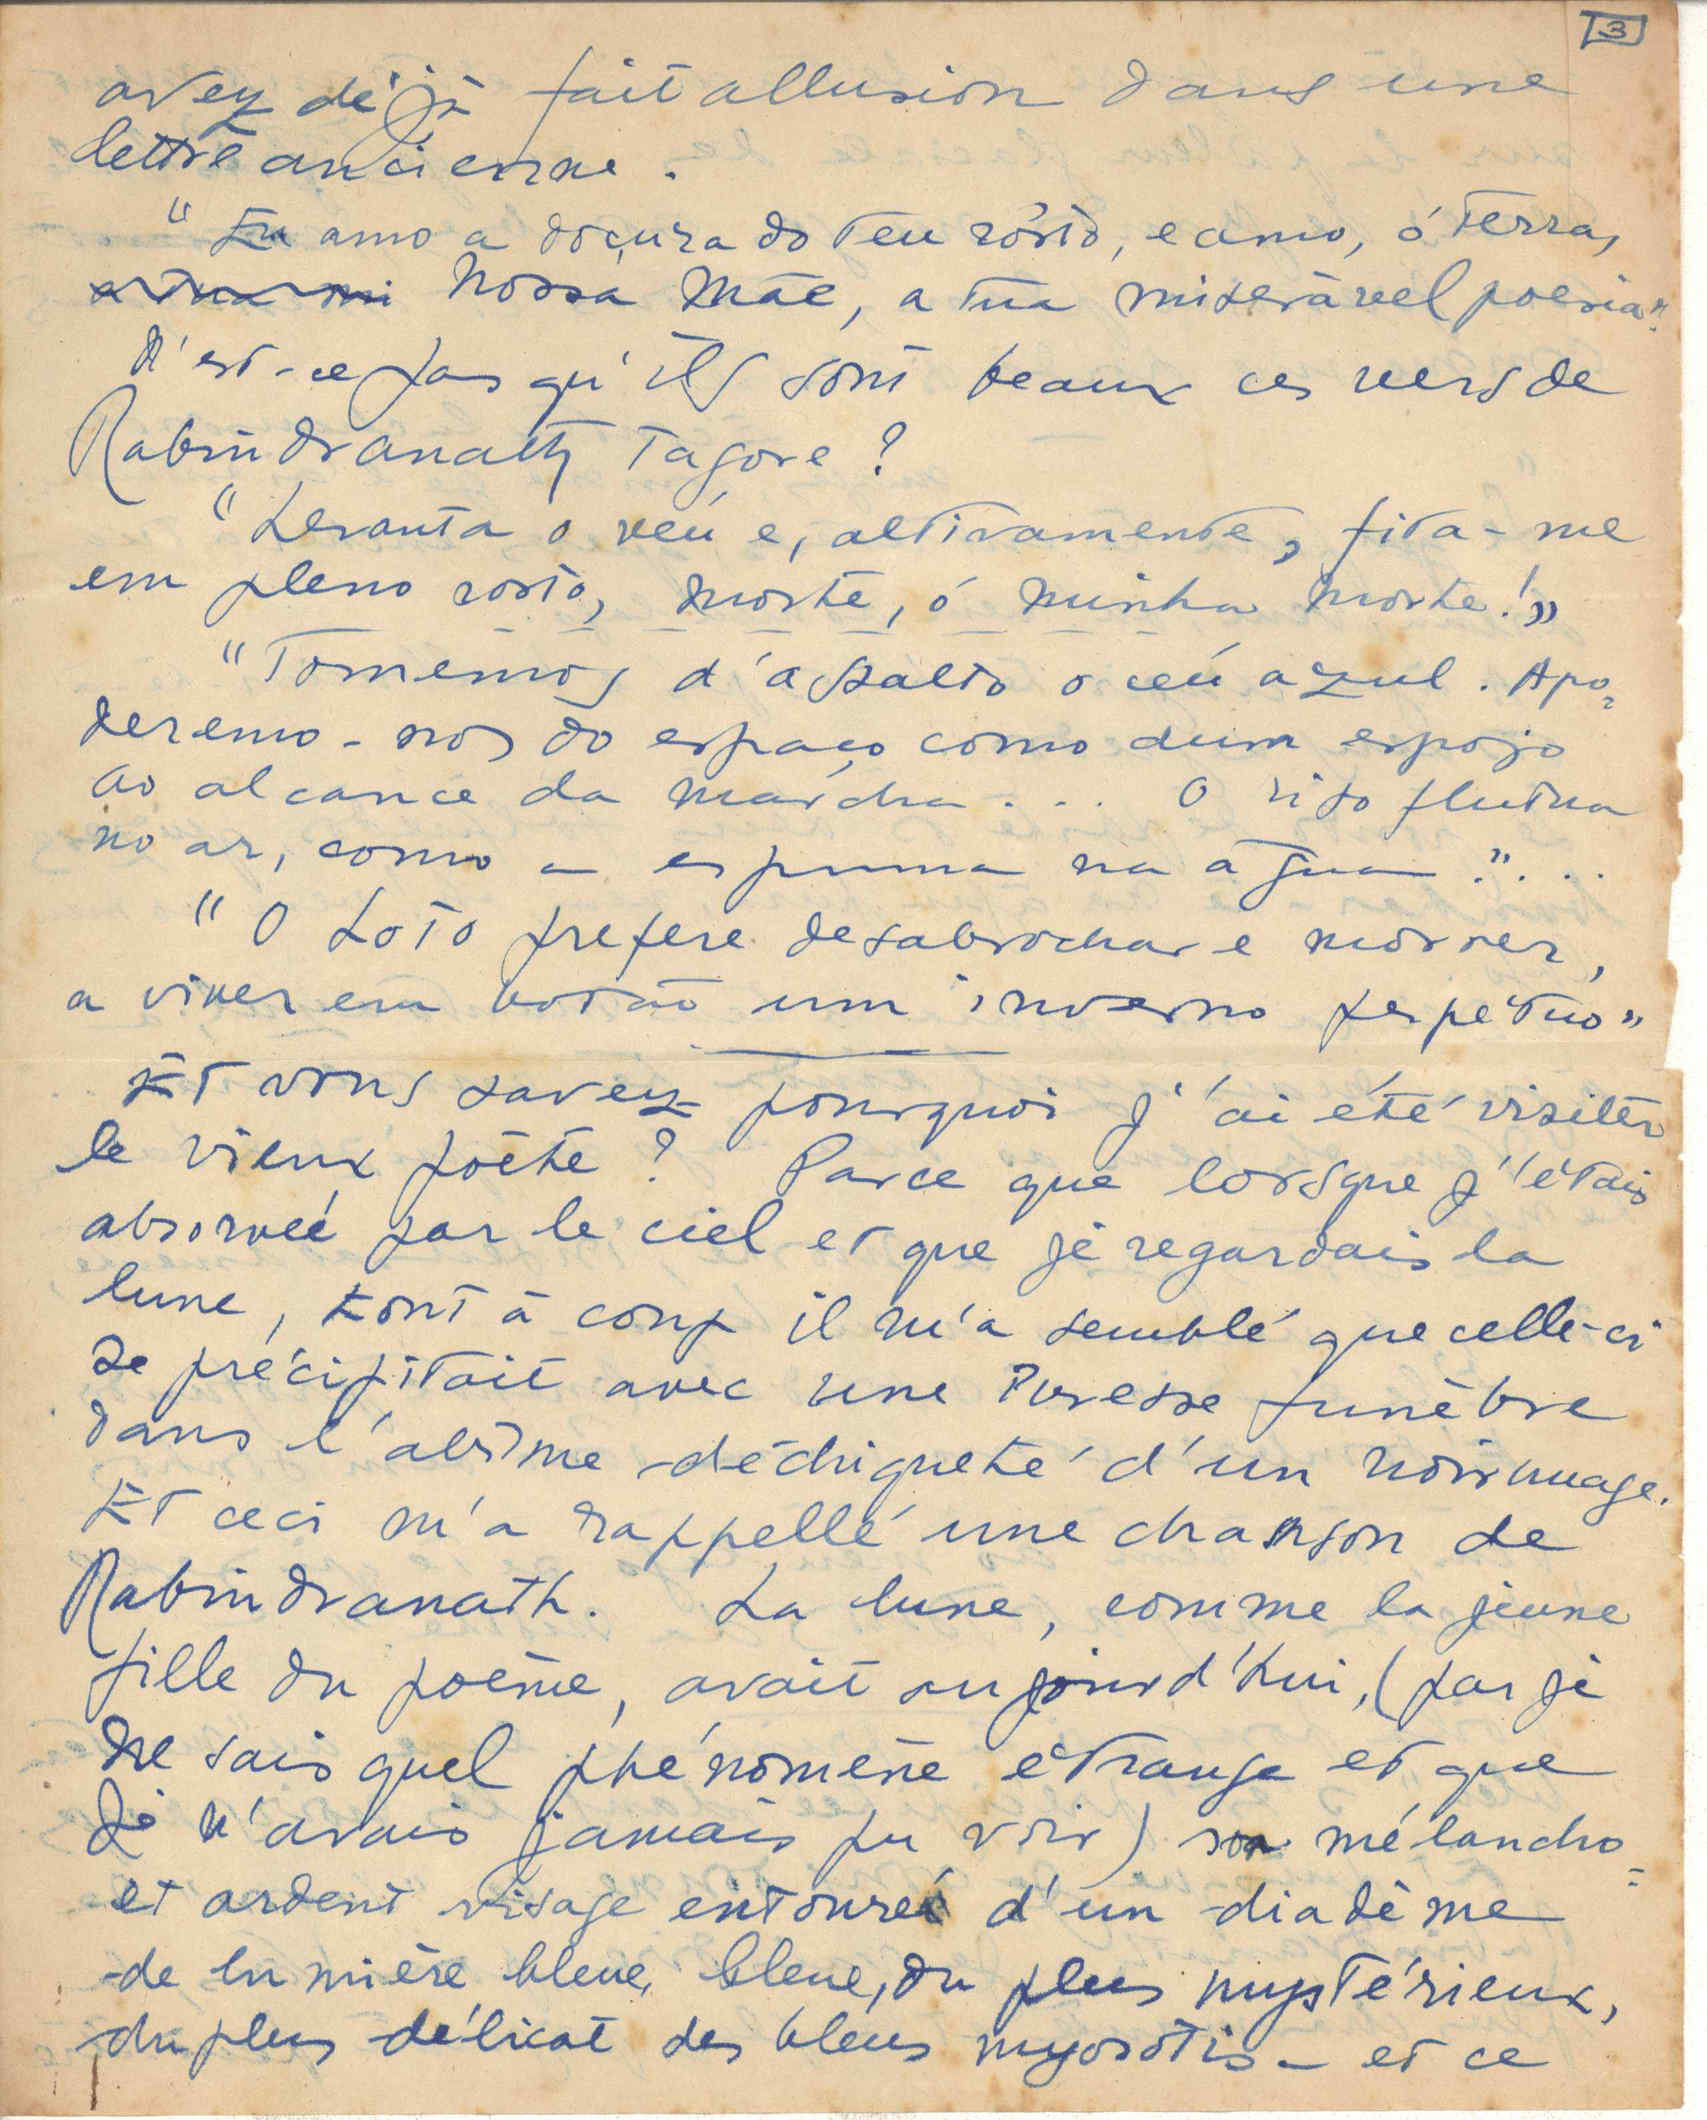 3
avez déjà fait allusion dans une
lettre ancienne.
"Eu amo a doçura do teu rôsto, e amo, ó terra,
nossa mãe, a tua miserável poesia".
N'est-ce pas qu'ils sont beaux ces vers de
Rabindranath Tagore ?
"Levanta o véu e, altivamente, fita-me
em pleno rosto, morte, ó minha morte!"
"Tomemos d'assalto o céu azul. Apo-
deremo-nos do espaço como dum espojo
ao alcance da marcha... O riso flutua
no ar, como a espuma na água"....
"O Loto prefere desabrochar e morrer,
a viver em botão um inverno perpétuo"
Et vous savez pourquoi j'ai été visiter
le vieux poète ? Parce que lorsque j'étais
absorveé par le ciel et que je regardais la
lune, tout à coup il m'a semblé que celle-ci
se précipitait avec une ivresse funèbre
dans l'abîme déchiqueté d'un noir nuage.
Et ceci m'a rappellé une chanson de
Rabindranath. La lune, comme la jeune
fille du poème, avait aujourd'hui, (par je
ne sais quel phénomène étrange et que
je n'avais jamais pu voir) son mélancho-
et ardent visage entouré d'un diadème
de lumière bleue, bleue, du plus mystérieux,
du plus délicat des bleus myosotis - et ce